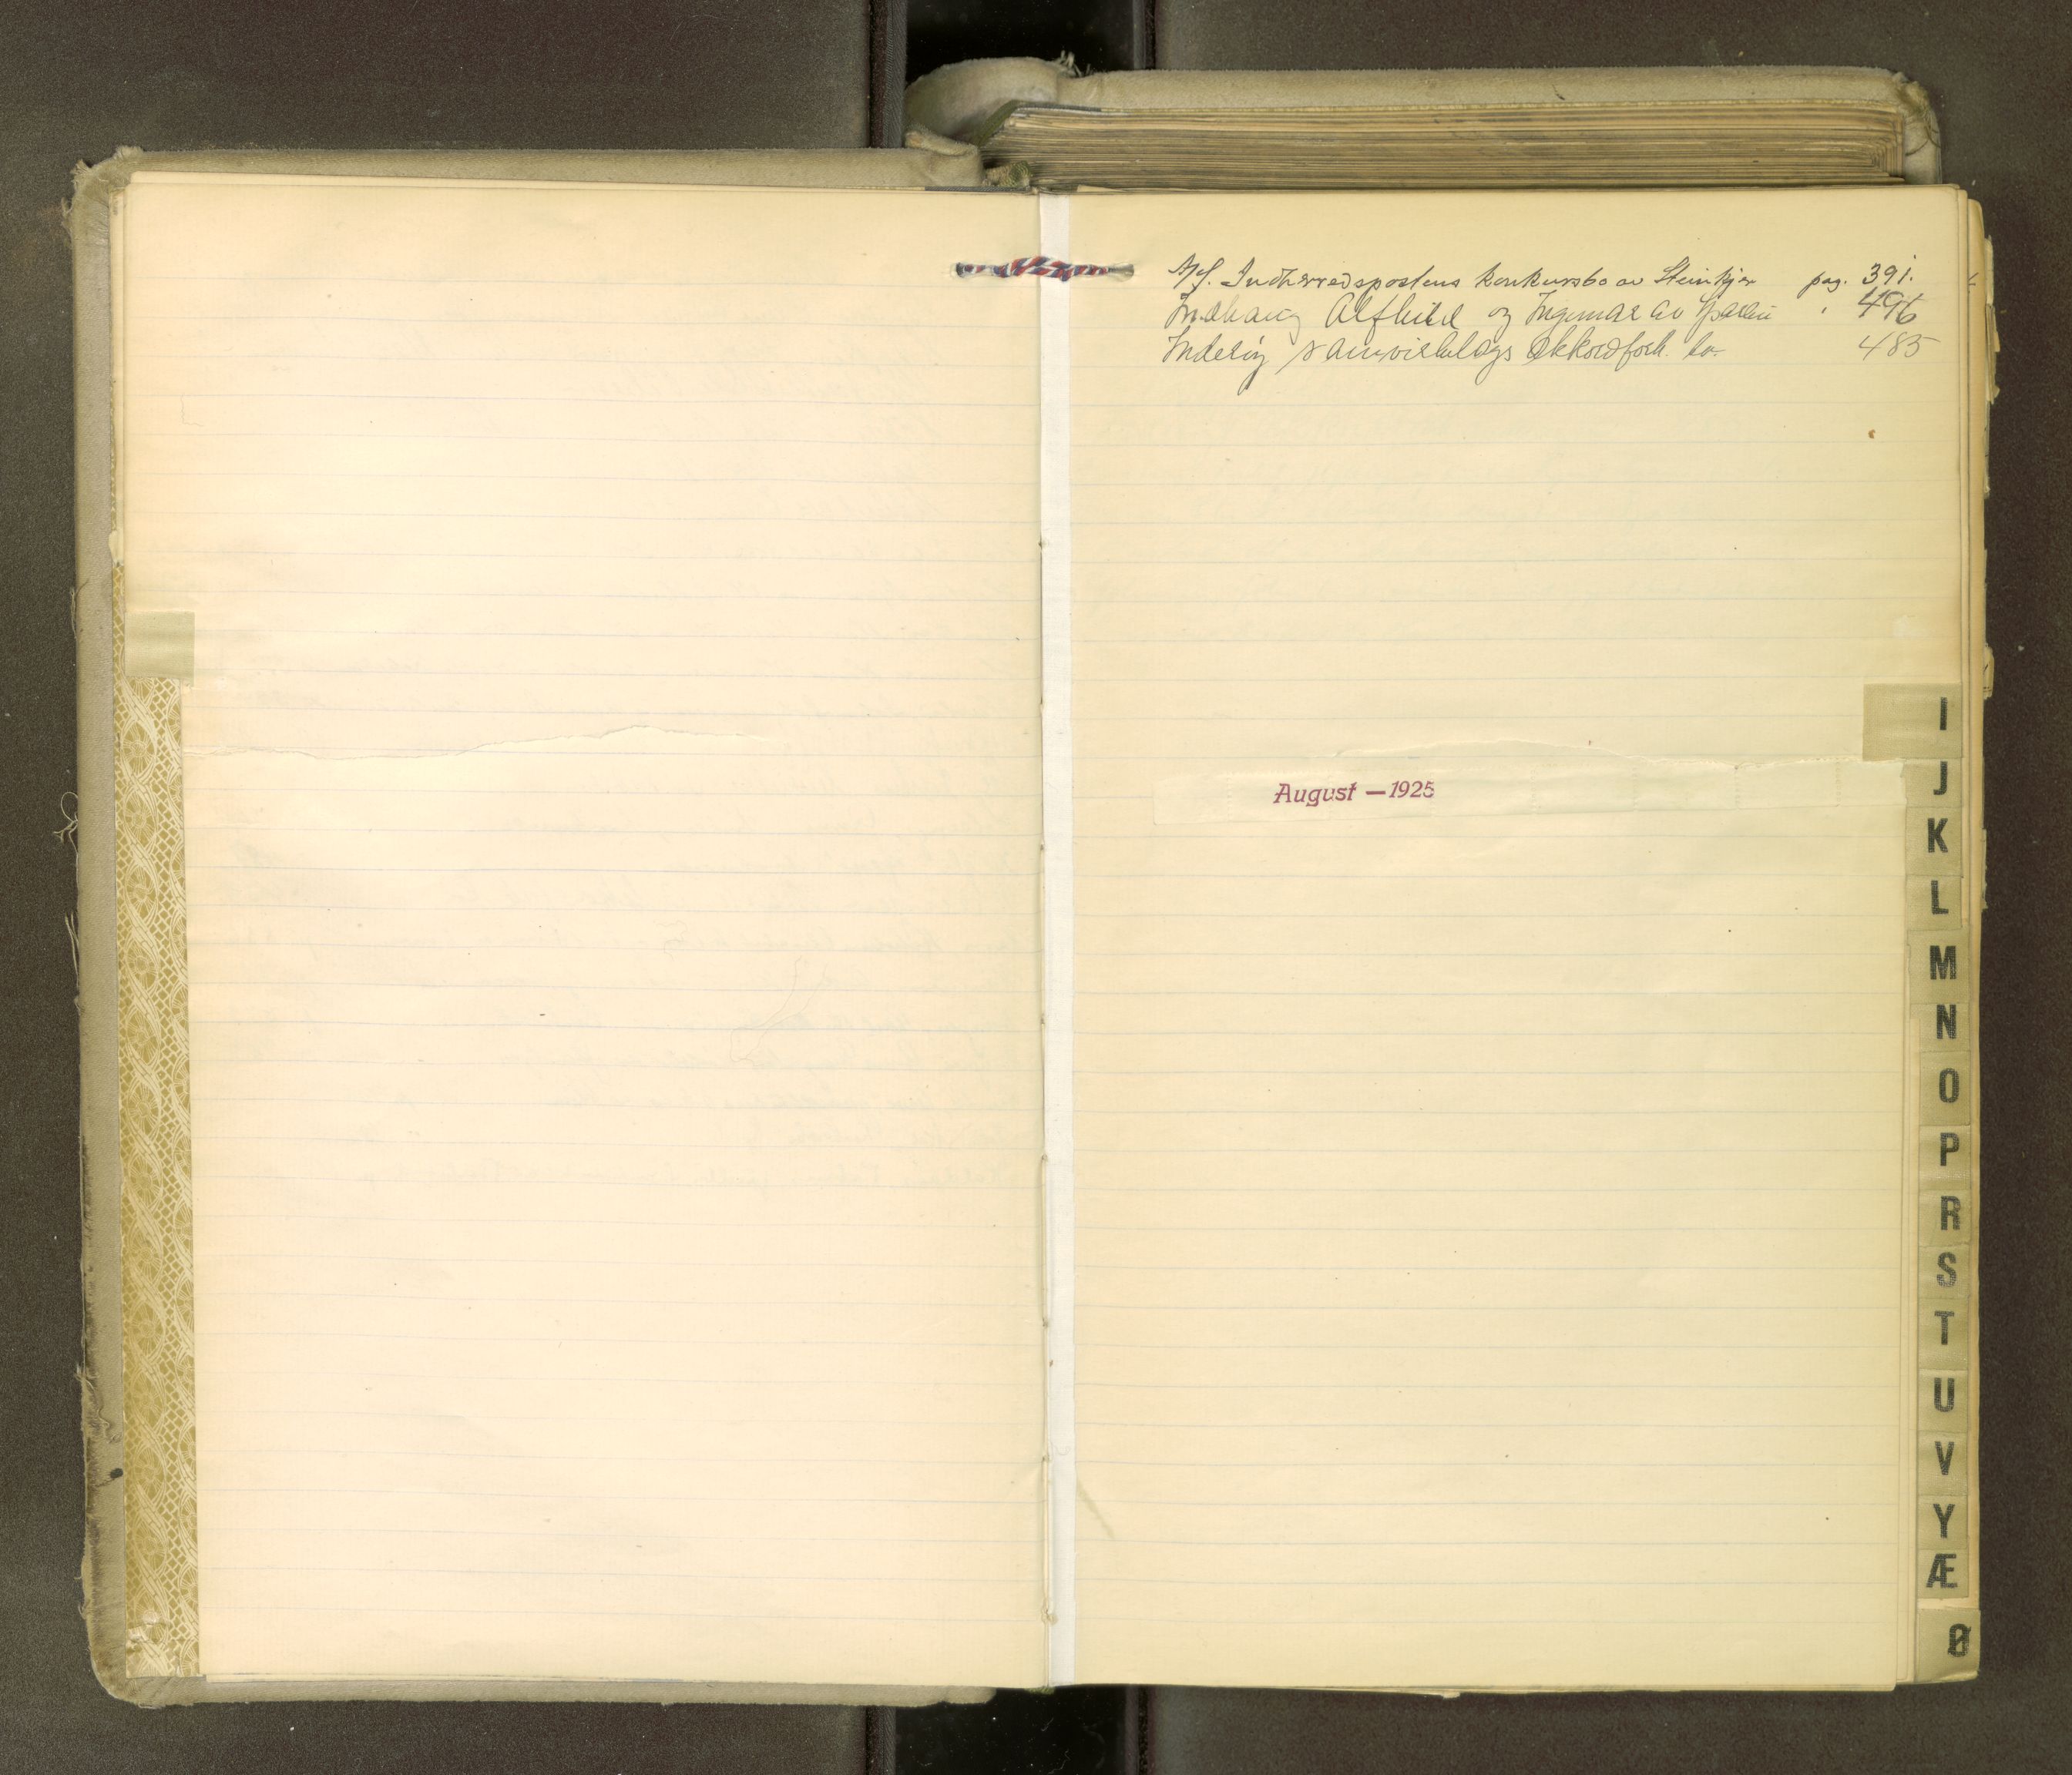 A/S. Indherredspostens konkursbo av Steinkjer pag. 391.
Alfhild og Ingemar av Sparbu " 496
Inderøy samvirkelags akkordforh. bo. 485
I
August — 1925
J
K
L
M
N
O
P
R
S
T
U
V
Y
Æ
Ø